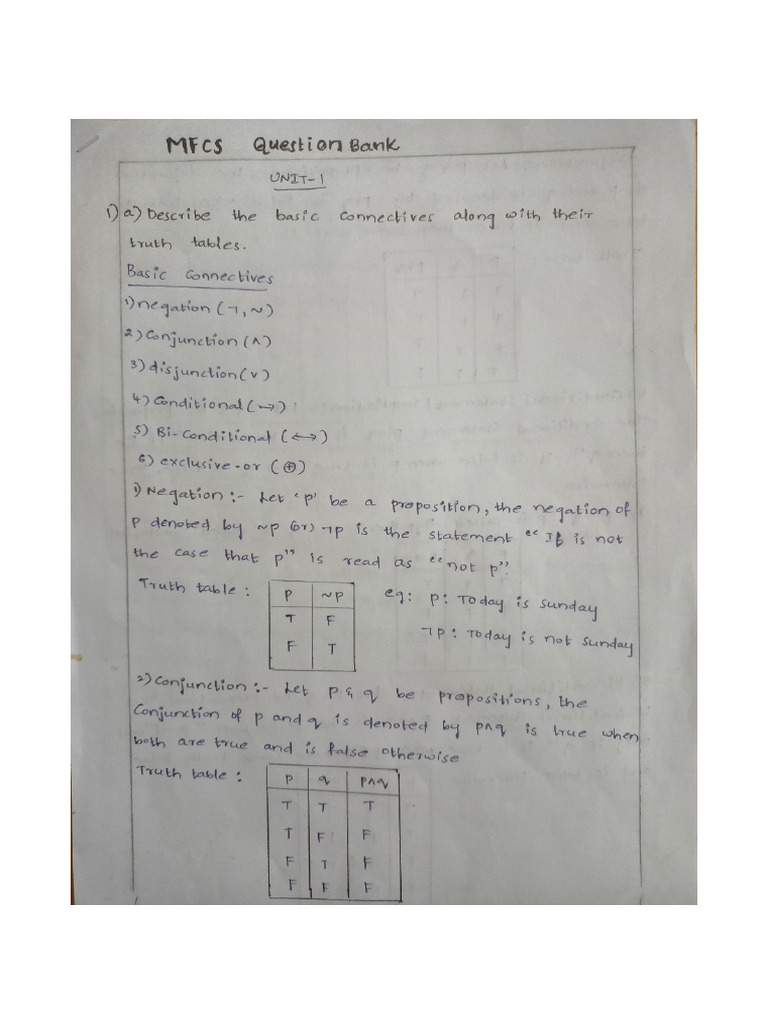 MFCS Question Bank
UNIT-1
1) a) Describe the basic connectives along with their
truth tables.
Basic Connectives
1) negation (¬, ~)
2) Conjunction (∧)
3) disjunction (∨)
4) Conditional (→)
5) Bi-Conditional (↔)
6) exclusive-or (⊕)
1) Negation :- Let 'p' be a proposition, the negation of
p denoted by ~p (or) ¬p is the statement "It is not
the case that p" is read as "not p".
Truth table : p ~p eg: p: Today is Sunday
T F
¬p: Today is not Sunday
F T
2) Conjunction :- Let p & q be propositions, the
Conjunction of p and q is denoted by p∧q is true when
both are true and is false otherwise
Truth table : p q p∧q
T T T
T F F
F T F
F F F